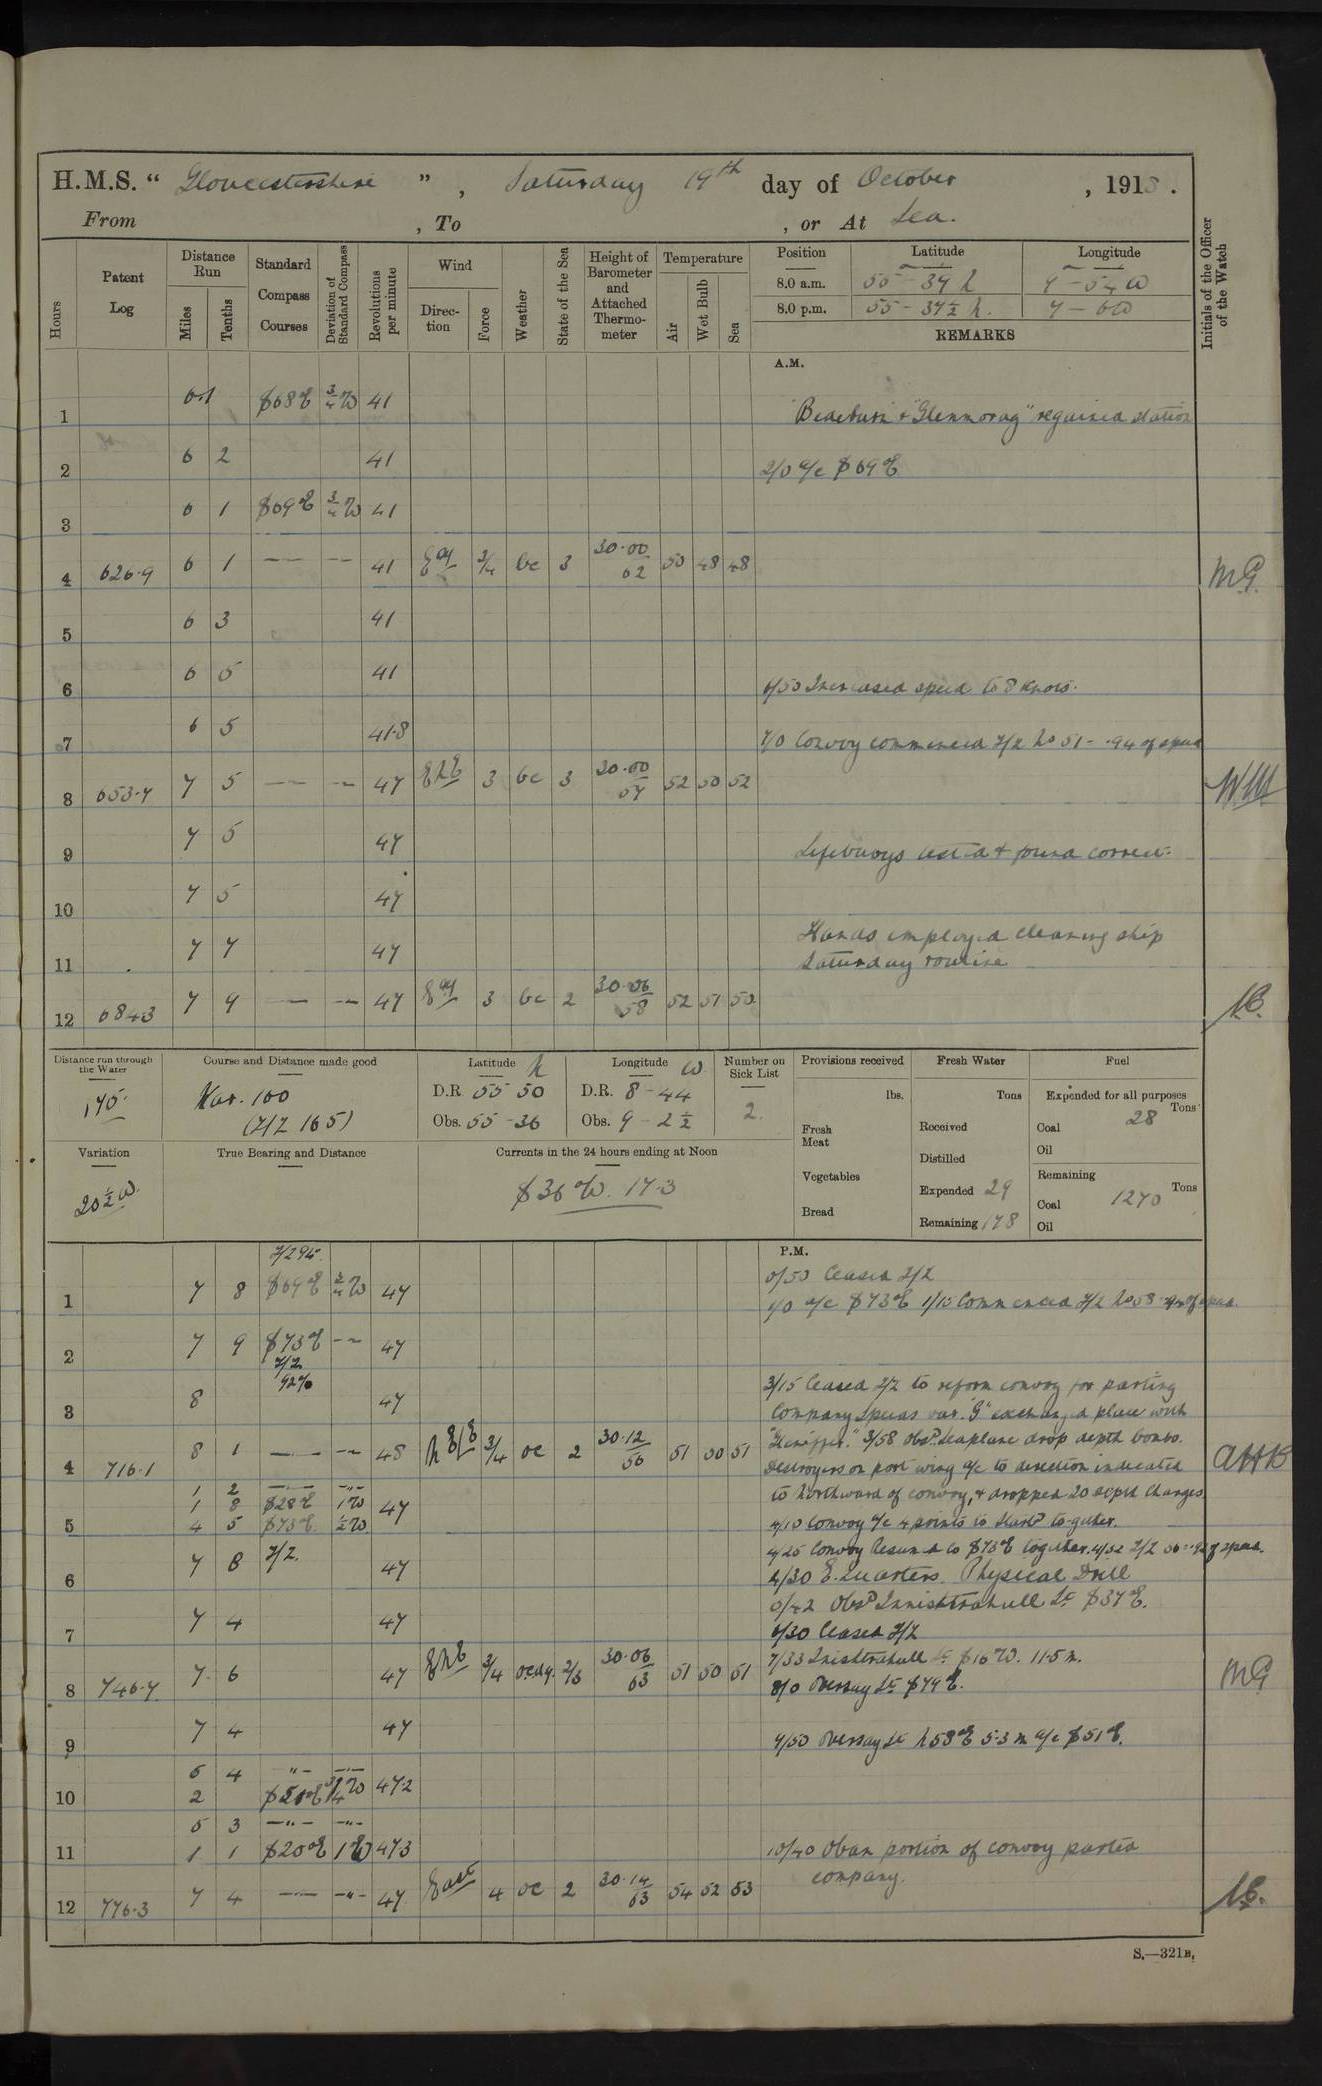 H.M.S. “ Gloucestershire ” , Saturday 19th day of October , 1918 .
From , To , or At Sea.
Hours
Patent Log
Distance Run
Miles
Tenths
Standard Compass Courses
Deviation of Standard Compass
Revolutions per minute
Wind
Direction
Force
Weather
State of the Sea
Height of Barometer and Attached Thermometer
Temperature
Air
Wet Bulb
Sea
Position Latitude Longitude
8.0 a.m. 55-37 N
8.0 p.m. 55-37½ N. 7-6W
REMARKS
Initials of the Officer of the Watch
A.M.
1 6.1 S68°E ¾W 41 & "Glenmorag" regained station
2 6 2 41 2/0 a/c S69°E
3 6 1 S69°E ¾W 41
4 626.9 6 1 — -- 41 E'ly 3/4 bc 3 30.00 62 50 48 48 MG.
5 6 3 41
6 6 5 41 6/50 Increased speed to 8 knots.
7 6 5 41.8 7/0 Convoy commenced Z/Z No 51 - .94 of speed
8 653.7 7 5 — -- 47 ENE 3 bc 3 30.00 57 52 50 52
9 7 5 47 Lifebuoys tested & found correct.
10 7 5 47
11 7 7 47 Hands employed cleaning ship
Saturday routine
12 684.3 7 9 — -- 47 E'ly 3 bc 2 30.06 58 52 51 50
Distance run through the Water
175
Course and Distance made good
100
(Z/Z 165)
Latitude N
D.R. 55 50
Obs. 55-36
Longitude W
D.R. 8-44
Obs. 9-2½
Number on Sick List
2.
Provisions received
lbs.
Fresh Meat
Vegetables
Bread
Fresh Water
Tons
Received
Distilled
Expended 29
Remaining 178
Fuel
Expended for all purposes
Tons
Coal 28
Oil
Remaining
Tons
Coal 1270
Oil
Variation
20½W.
True Bearing and Distance
Currents in the 24 hours ending at Noon
S36°W. 17.3
P.M.
Z/Z 94.
0/50 Ceased Z/Z
1 7 8 S69°E ¾W 47 1/0 a/c S73°E 1/15 Commenced Z/Z No 58 of speed.
2 7 9 S73°E -- 47
Z/Z
92%
3 8 47 3/15 Ceased Z/Z to reform convoy for parting
Company, Speeds var. "G" exchanged place with
4 716.1 8 1 — -- 48 3/4 oc 2 30.12 56 51 50 51 3/58 Obsd. seaplane drop depth bombs. AHB
Destroyers on port wing a/c to direction indicated
1 2 — -"-
1 8 S28°E 1W 47 to Northward of convoy, & dropped 20 depth charges.
5 4 5 S73°E. ½W 4/10 Convoy a/c 4 points to Starbd together.
4/25 Convoy Resumed Co S73°E together. 4/32 Z/Z of speed.
6 7 8 Z/Z. 47 4/30 E. Quarters. Physical Drill
5/42 Obsd Innishtrahull Lt S37°E.
7 7 4 47 6/30 Ceased Z/Z
7/33 Inishtrahull Lt S16°W. 11.5 m.
8 746.7 7 6 47 ENE 3/4 2/3 30.06 63 51 50 51 8/0 Oversay Lt S79°E. MG
9 7 4 47 9/50 Oversay Lt N58°E 5.3 m a/c S51°E.
5 4 -"- -"-
10 2 S51°E ¾W 47.2
5 3 -"- -"-
11 1 1 S20°E 1W 47.3 10/40 Oban portion of convoy parted
company.
12 776.3 7 4 — -"- 47 East 4 oc 2 30.14 63 54 52 53
S.—321B.